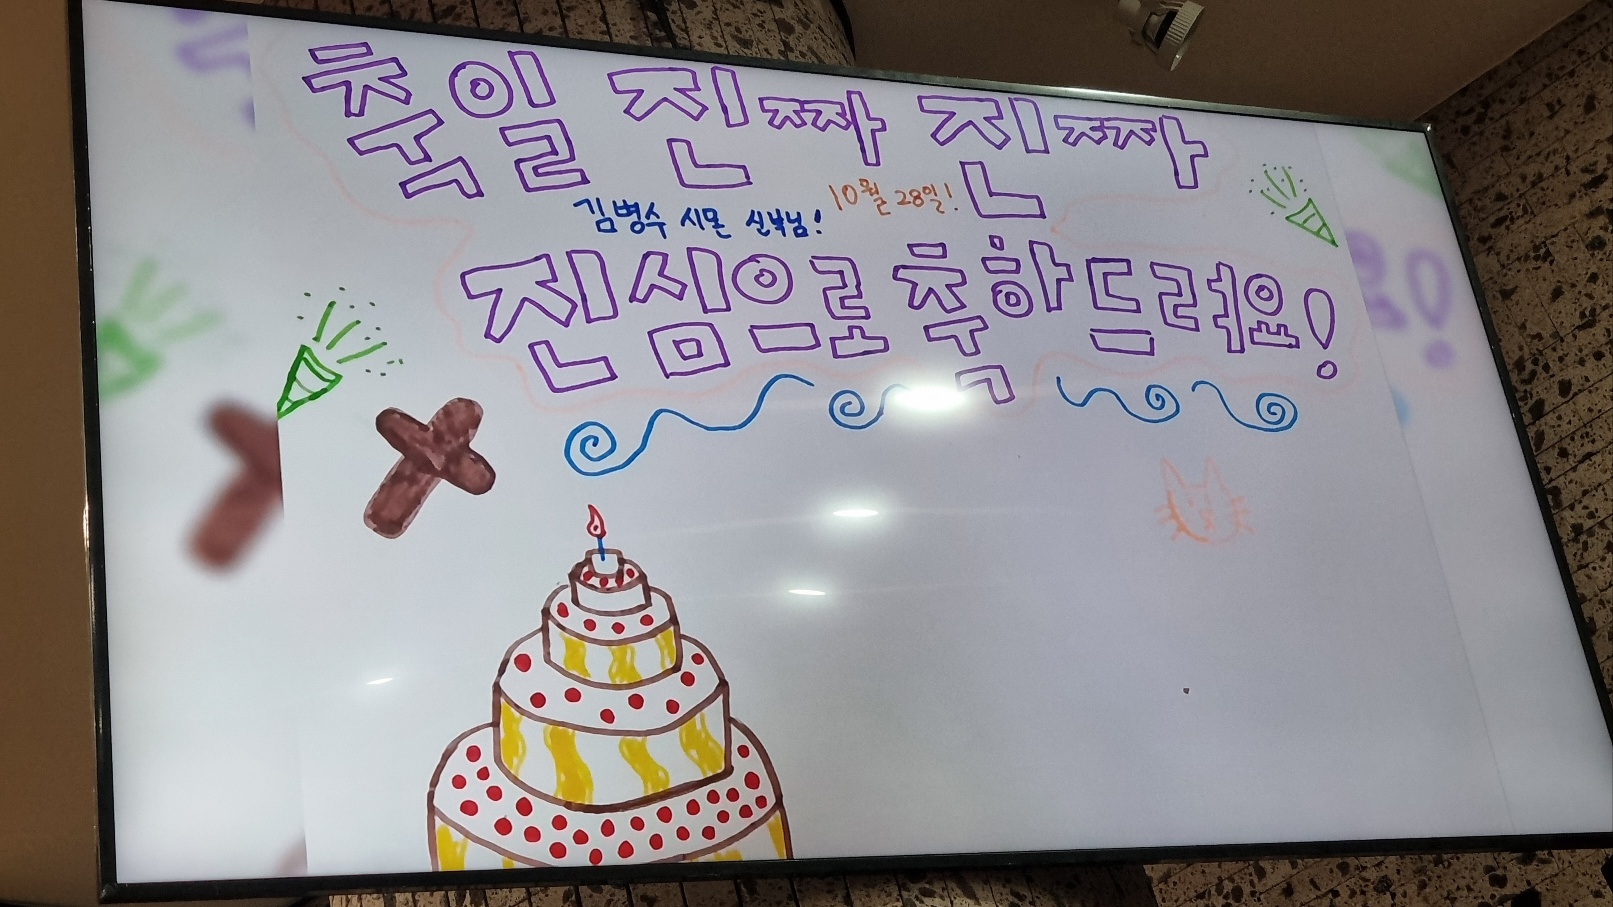 축일 진짜 진짜
김병수 시몬 신부님! 10월 28일!
진심으로 축하드려요!